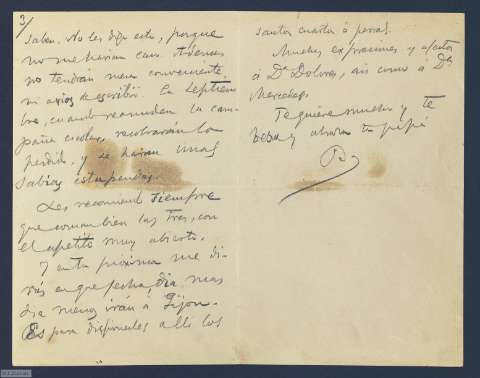 3/
saben. No les digo esto, porque
no me harían caso. Además
no tendrán nunca conveniente,
ni avíos de escribir. En Septiem-
bre, cuando reanuden la cam-
paña escolar, recobrarán lo
perdido, y se harán unas
sabias estupendas.
Les recomiendo siempre
que coman bien las tres, con
el apetito muy abierto.
Y en tu próxima me di-
rás en que fecha, día más
día menos irán á Gijón.
Es para disponerles allí los
santos cuarto á
Muchas expresiones y afectos
á Dª Dolores, así como á Dª
Mercedes.
Te quiere mucho y te
besa y abraza tu papá